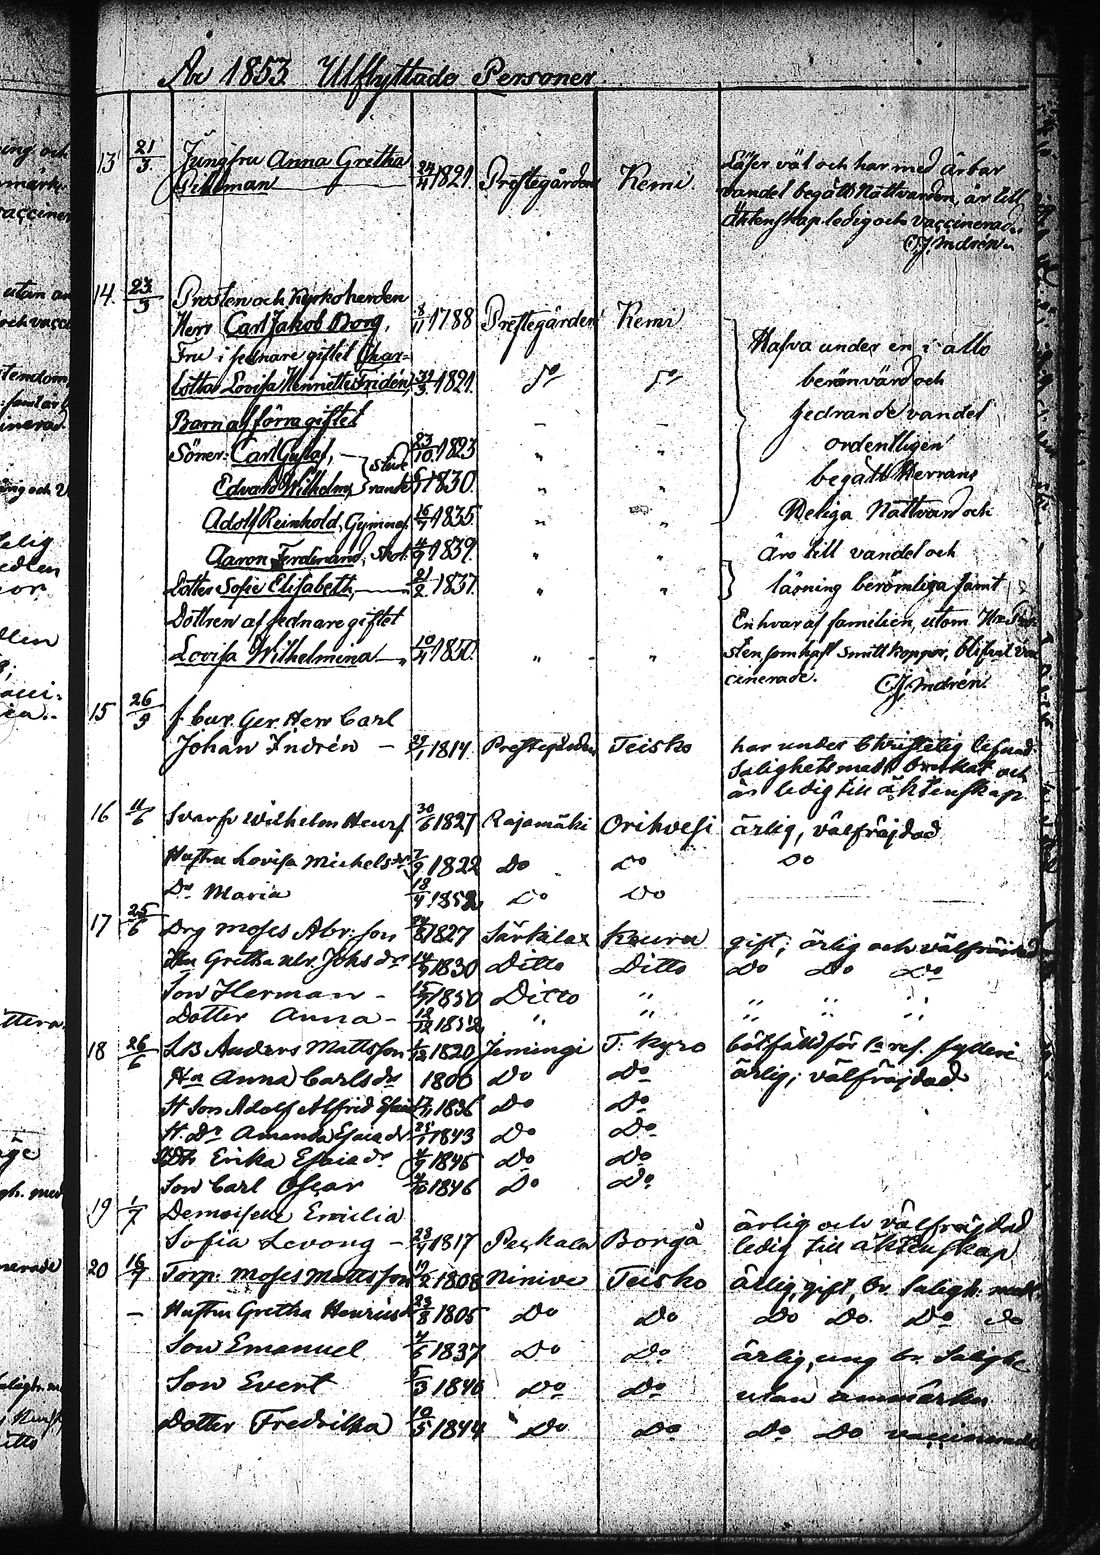 År 1853 Utflyttade Personer
13 21/3 Jungfru Anna Gretha
24/4 1821. Prestegården Kemi
Läser väl och har med ärbar
vandel begått Nattvarden, är till
äktenskap ledig och vaccinerad.
CJ. Indrén.
14. 23/3 Prosten och Kyrkoherden
Herr Carl Jakob Borg, 8/11 1788 Prestegården Kemi
Fru i sednare giftet Char-
lotta Lovisa Henriette Fridén, 1821. Do Do
Barn af förra giftet
Söner: Carl Gustaf, 23/10 1823 " "
Edvard Wilhelm, 1830. " "
stude
rande
Adolf Reinhold, Gymnas. 16/7 1835 " "
Aaron Ferdinand, 1839. " "
Dotter Sofie Elisabeth, 21/2 1837. " "
Dottren af sednare giftet
Lovisa Wilhelmina 10/4 1850. " "
Hafva under en i allo
berömvärd och
hedrande vandel
ordentligen
begått Herrans
Heliga Nattvard och
äro till vandel och
läsning berömliga samt
En hvar af familien, utom Hr Pro-
sten som haft Smittkoppor, blifvit vac-
cinerade.
CJ. Indrén.
15 26/3 f. Cur. Ger. Herr Carl
Johan Indrén 1814. Prestegården Teisko
har under Christelig lefnad
Salighets med. brukat och
är ledig till äktenskap
16 11/6 Svarfv Wilhelm Henrs 30/6 1827 Rajamäki Orihvesi ärlig, välfräjdad
Hustru Lovisa Michelsdr 7/9 1822 Do Do Do
Dr Maria 1852 Do Do
17 25/6 Drg Moses Abr:son 24/8 1827 Särkilax Keuru gift; ärlig och välfräjdad
Hu Gretha Johsdr 14/9 1830 Ditto Ditto Do Do Do
Son Herman 15/7 1850 Ditto " " " "
Dotter Anna 18/12 1852 " " " " "
18 26/6 Anders Mattsson 1/12 1820 Jemingi T. Kyro bötfälld för 1a res. fylleri
Ha Anna Carlsdr 1800 Do Do ärlig; välfräjdad
St Son Adolf Alfred 1836 Do Do
St. Dr Amanda Esaiadr 25/1 1843 Do Do
Erika Esaiadr 1845 Do Do
Son Carl Oscar 1846 Do Do
19 1/7 Demoiselle Emilia
Sofia Levong 23/9 1817 Paskala Borgå
ärlig och välfräjdad
ledig till äktenskap
20 16/7 Torp: Moses Mattsson 11/2 1808 Ninive Teisko ärlig, gift, br. Saligh. med.
Hustru Gretha Henriksdr 23/8 1805 Do Do Do Do Do Do
Son Emanuel 4/6 1837 Do Do ärlig, ung br. Saligh
Son Evert 5/3 1840 Do Do utan anmärkn
Dotter Fredrika 10/5 1844 Do Do Do Do vaccinerade